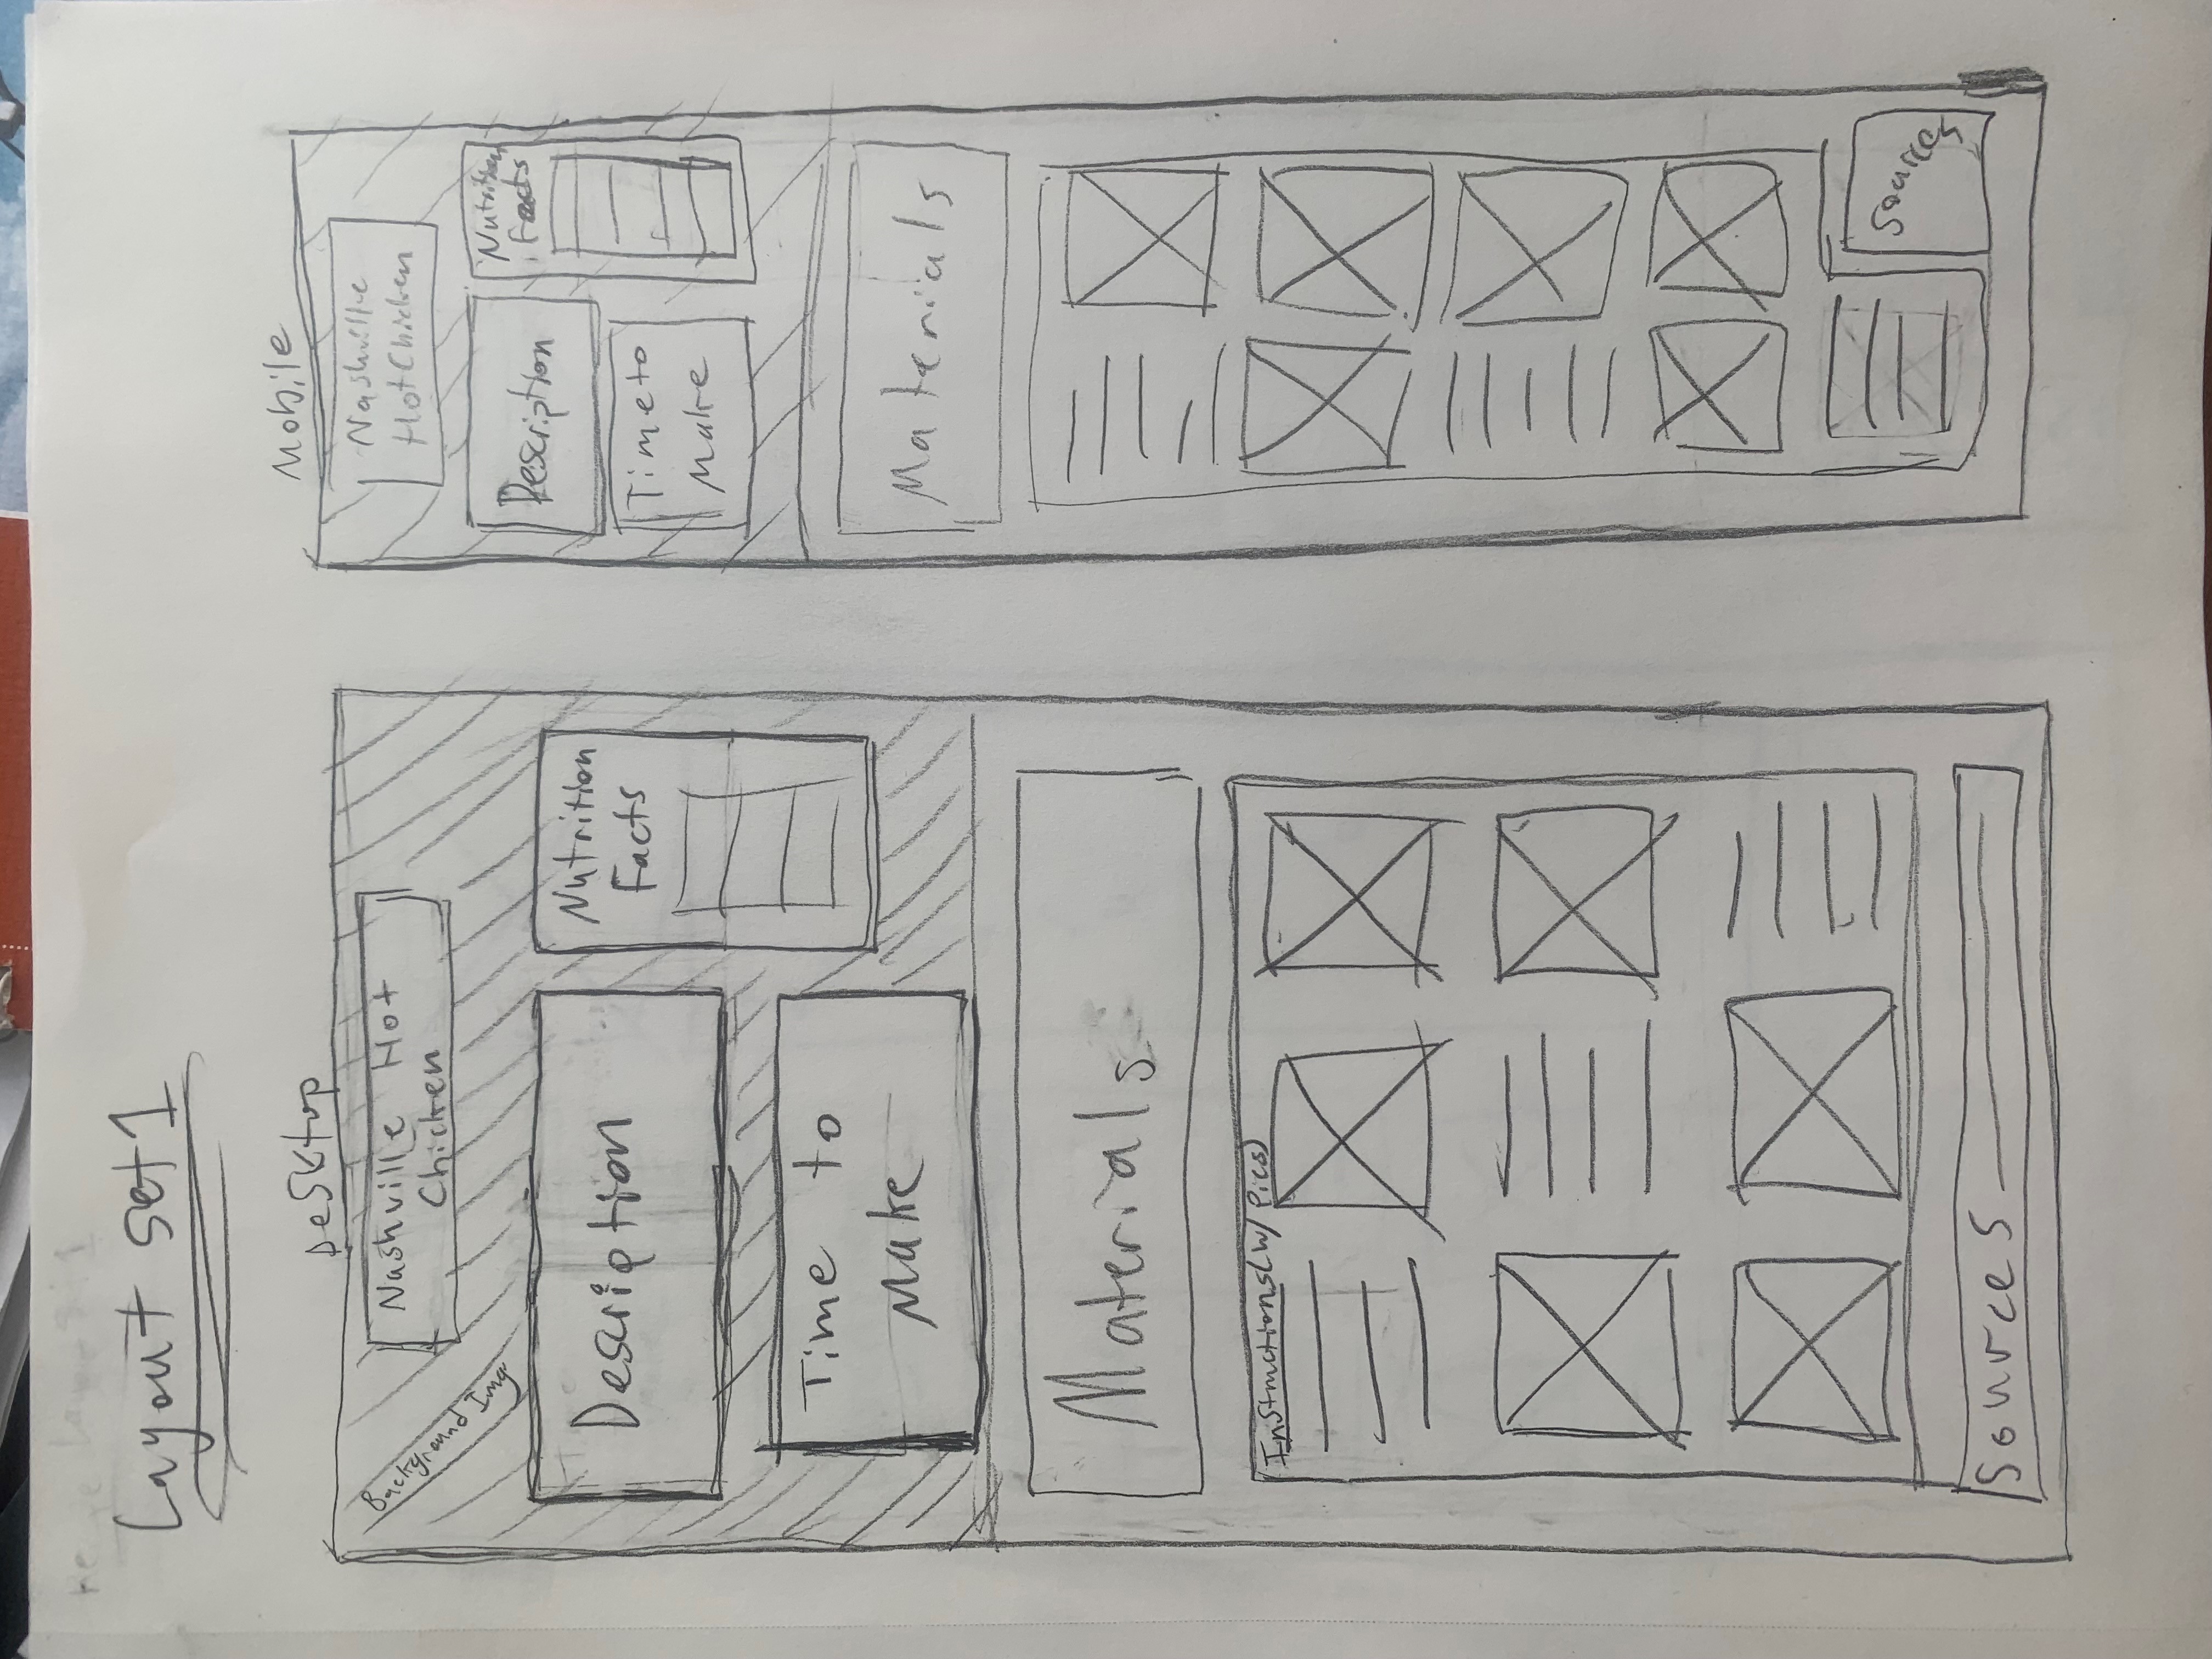 Layout set 1
Desktop
Nashville Hot
Chicken
Background Img
Description
Nutrition
Facts
Time to
Make
Materials
Instructions(w/Pics)
Sources
Mobile
Nashville
Hot Chicken
Description
Nutrition
Facts
Time to
Make
Materials
Sources